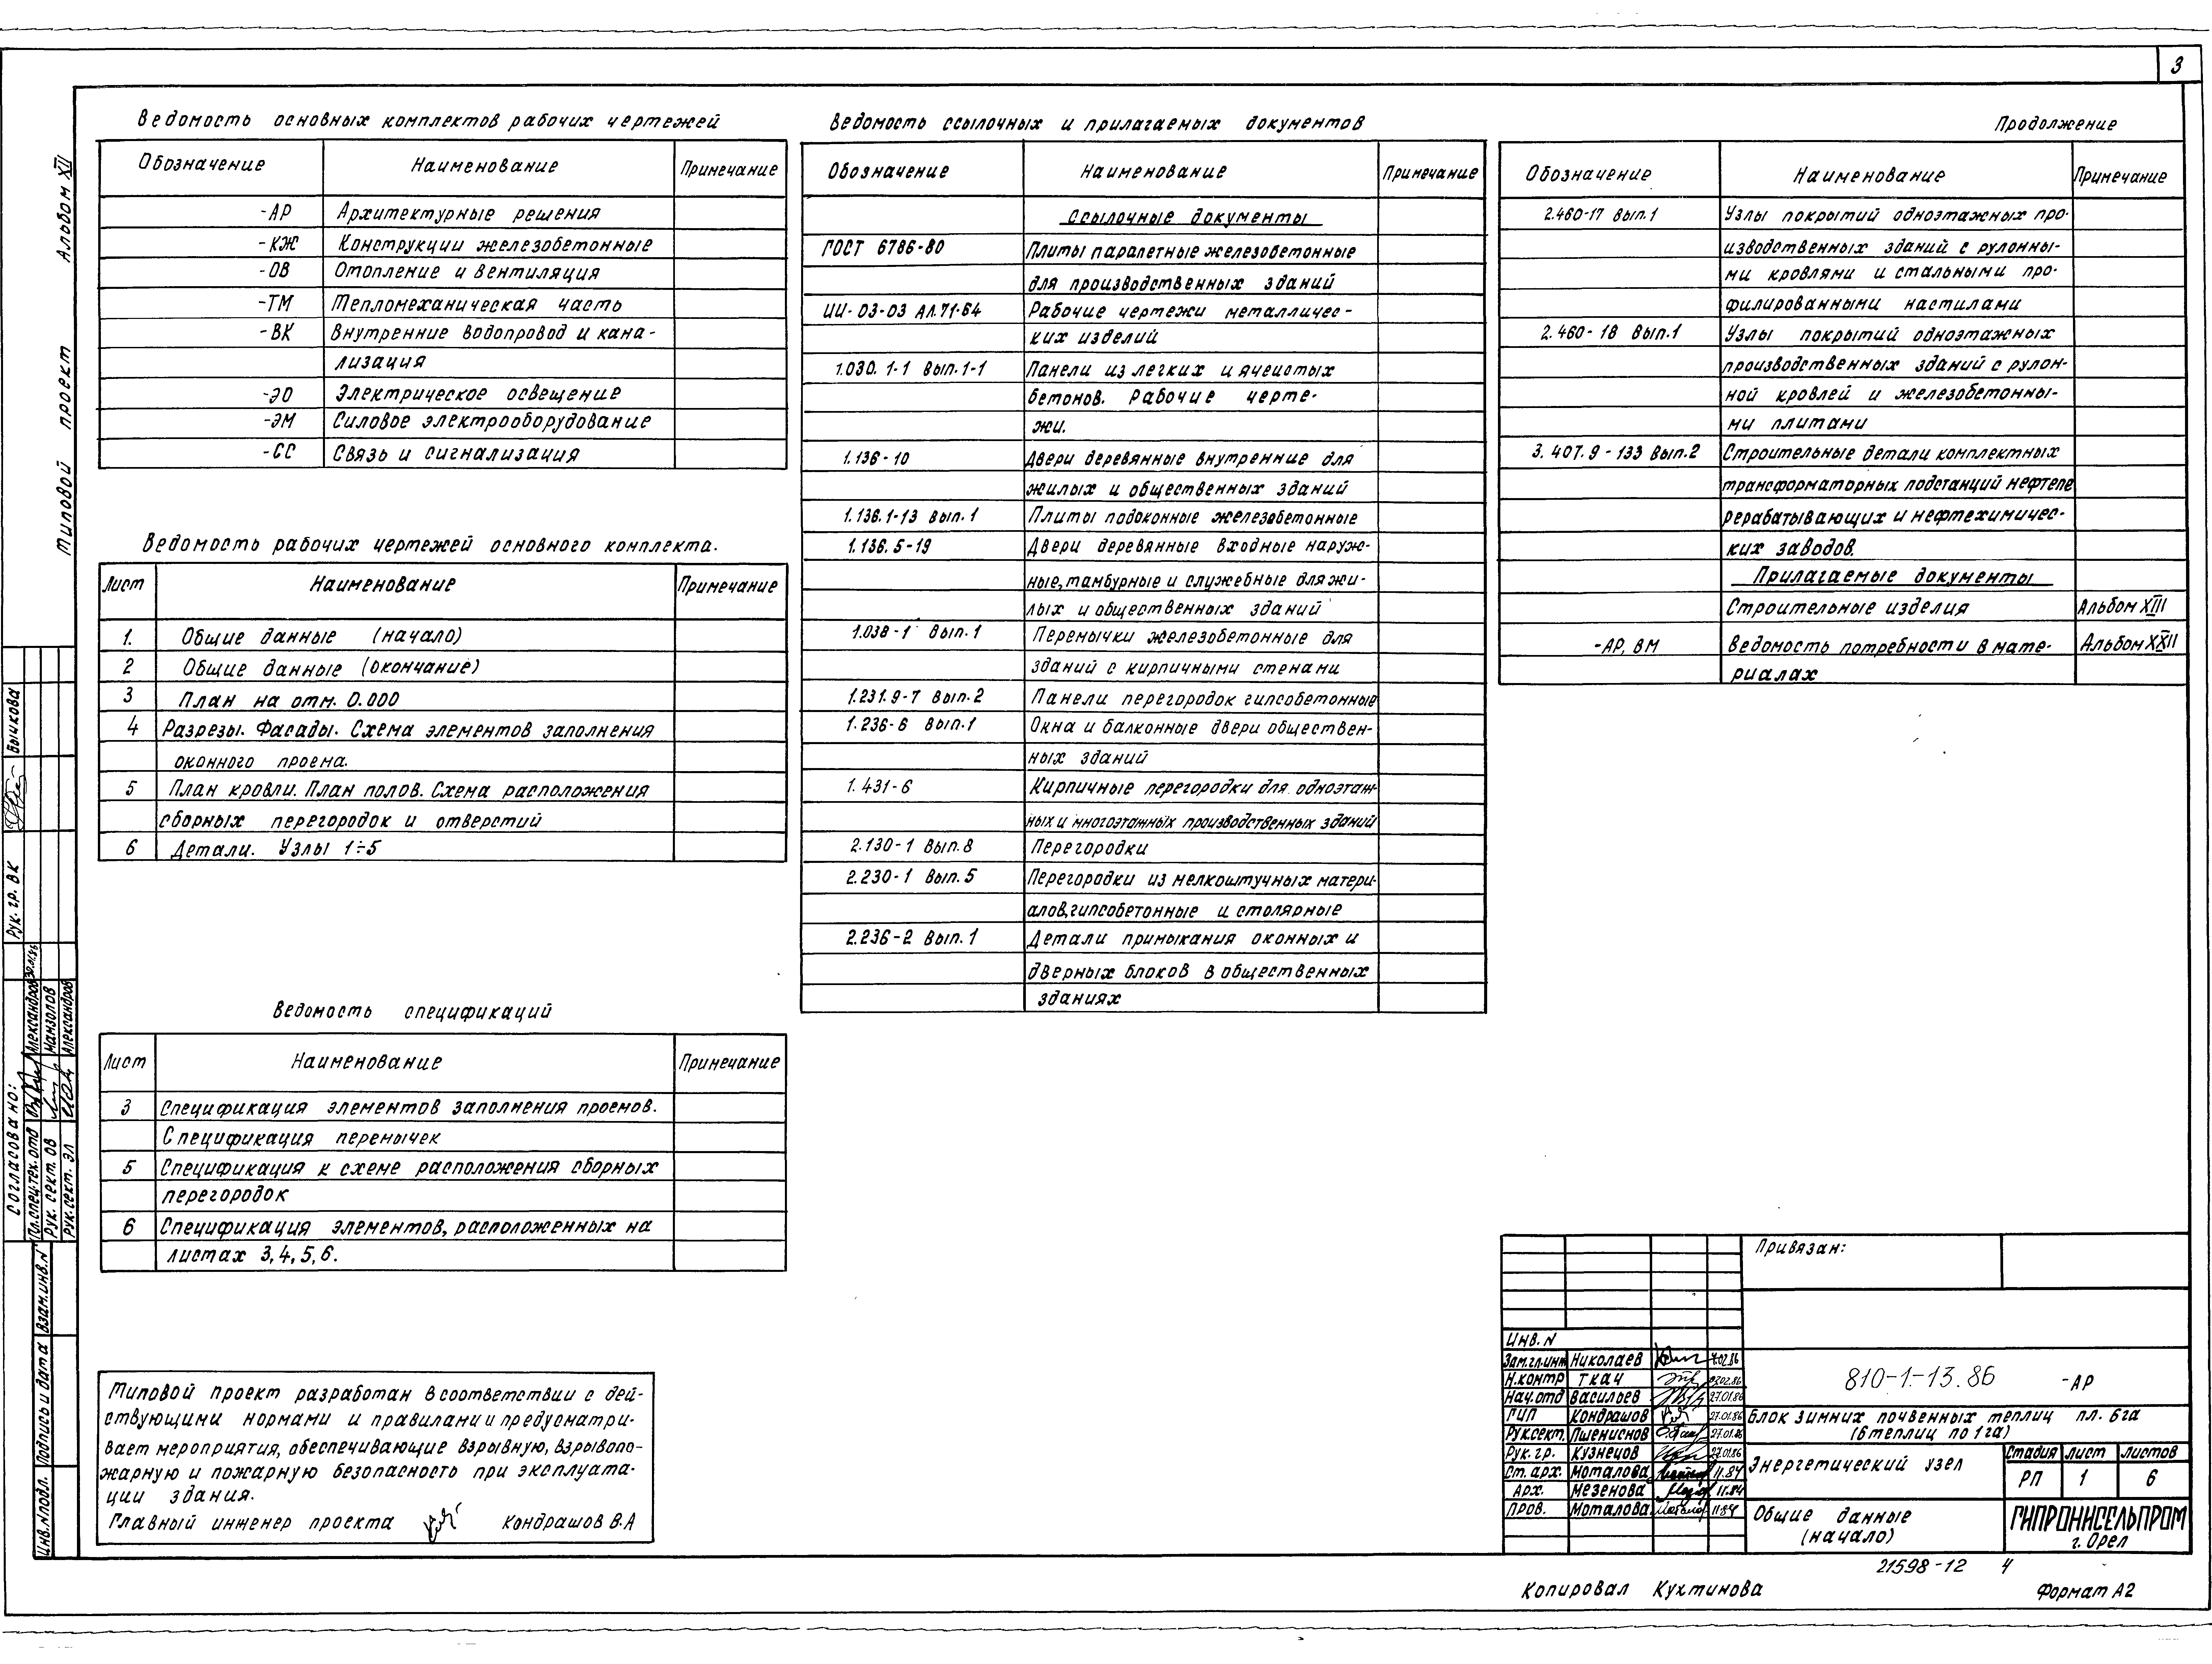 3
Альбом XII
Типовой проект
Ведомость основных комплектов рабочих чертежей
Обозначение Наименование Примечание
-АР Архитектурные решения
-КЖ Конструкции железобетонные
-ОВ Отопление и вентиляция
-ТМ Тепломеханическая часть
-ВК Внутренние водопровод и кана-
лизация
-ЭО Электрическое освещение
-ЭМ Силовое электрооборудование
-СС Связь и сигнализация
Ведомость рабочих чертежей основного комплекта.
Лист Наименование Примечание
1. Общие данные (начало)
2 Общие данные (окончание)
3 План на отм. 0.000
4 Разрезы. Фасады. Схема элементов заполнения
оконного проема.
5 План кровли. План полов. Схема расположения
сборных перегородок и отверстий
6 Детали. Узлы 1÷5
Ведомость спецификаций
Лист Наименование Примечание
3 Спецификация элементов заполнения проемов.
Спецификация перемычек
5 Спецификация к схеме расположения сборных
перегородок
6 Спецификация элементов, расположенных на
листах 3,4,5,6.
Типовой проект разработан в соответствии с дей-
ствующими нормами и правилами и предусматри-
вает мероприятия, обеспечивающие взрывную, взрывопо-
жарную и пожарную безопасность при эксплуата-
ции здания.
Главный инженер проекта Кондрашов В.А
Ведомость ссылочных и прилагаемых документов
Обозначение Наименование Примечание
Ссылочные документы
ГОСТ 6786-80 Плиты парапетные железобетонные
для производственных зданий
ИИ-03-03 АЛ.71-64 Рабочие чертежи металличес-
ких изделий
1.030.1-1 Вып.1-1 Панели из легких и ячеистых
бетонов. Рабочие черте-
жи.
1.136-10 Двери деревянные внутренние для
жилых и общественных зданий
1.136.1-13 Вып.1 Плиты подоконные железобетонные
1.136.5-19 Двери деревянные входные наруж-
ные, тамбурные и служебные для жи-
лых и общественных зданий
1.038-1 Вып.1 Перемычки железобетонные для
зданий с кирпичными стенами
1.231.9-7 Вып.2 Панели перегородок гипсобетонные
1.236-6 Вып.1 Окна и балконные двери обществен-
ных зданий
1.431-6 Кирпичные перегородки для одноэтаж-
ных и многоэтажных производственных зданий
2.130-1 Вып.8 Перегородки
2.230-1 Вып.5 Перегородки из мелкоштучных матери-
алов, гипсобетонные и столярные
2.236-2 Вып.1 Детали примыкания оконных и
дверных блоков в общественных
зданиях
Продолжение
Обозначение Наименование Примечание
2.460-17 Вып.1 Узлы покрытий одноэтажных про-
изводственных зданий с рулонны-
ми кровлями и стальными про-
филированными настилами
2.460-18 Вып.1 Узлы покрытий одноэтажных
производственных зданий с рулон-
ной кровлей и железобетонны-
ми плитами
3.407.9-133 Вып.2 Строительные детали комплектных
трансформаторных подстанций нефтепе
рерабатывающих и нефтехимичес-
ких заводов.
Прилагаемые документы
Строительные изделия Альбом XIII
-АР, ВМ Ведомость потребности в мате- Альбом XXII
риалах
Согласовано:
Гл.спец.тех.отд Александров 30.01.86
Рук. сект. ОВ Мамзолов
Рук. сект. ЭЛ Александров
Рук. гр. ВК Бычкова
Инв.N подл. Подпись и дата Взам.инв.N
Привязан:
Инв.N
Зам.гл.инж Николаев 4.02.86
Н.контр Ткач 03.02.86
Нач.отд Васильев 27.01.86
ГИП Кондрашов 27.01.86
Рук.сект. Пшениснов 27.01.86
Рук.гр. Кузнецов 27.01.86
Ст.арх. Моталова 11.84
Арх. Мезенова 11.84
Пров. Моталова 11.84
810-1-13.86 -АР
Блок зимних почвенных теплиц пл. 6га
(6 теплиц по 1га)
Энергетический узел
Стадия Лист Листов
РП 1 6
Общие данные
(начало)
ГИПРОНИСЕЛЬПРОМ
г. Орел
21598-12 4
Копировал Кухтинова
Формат А2